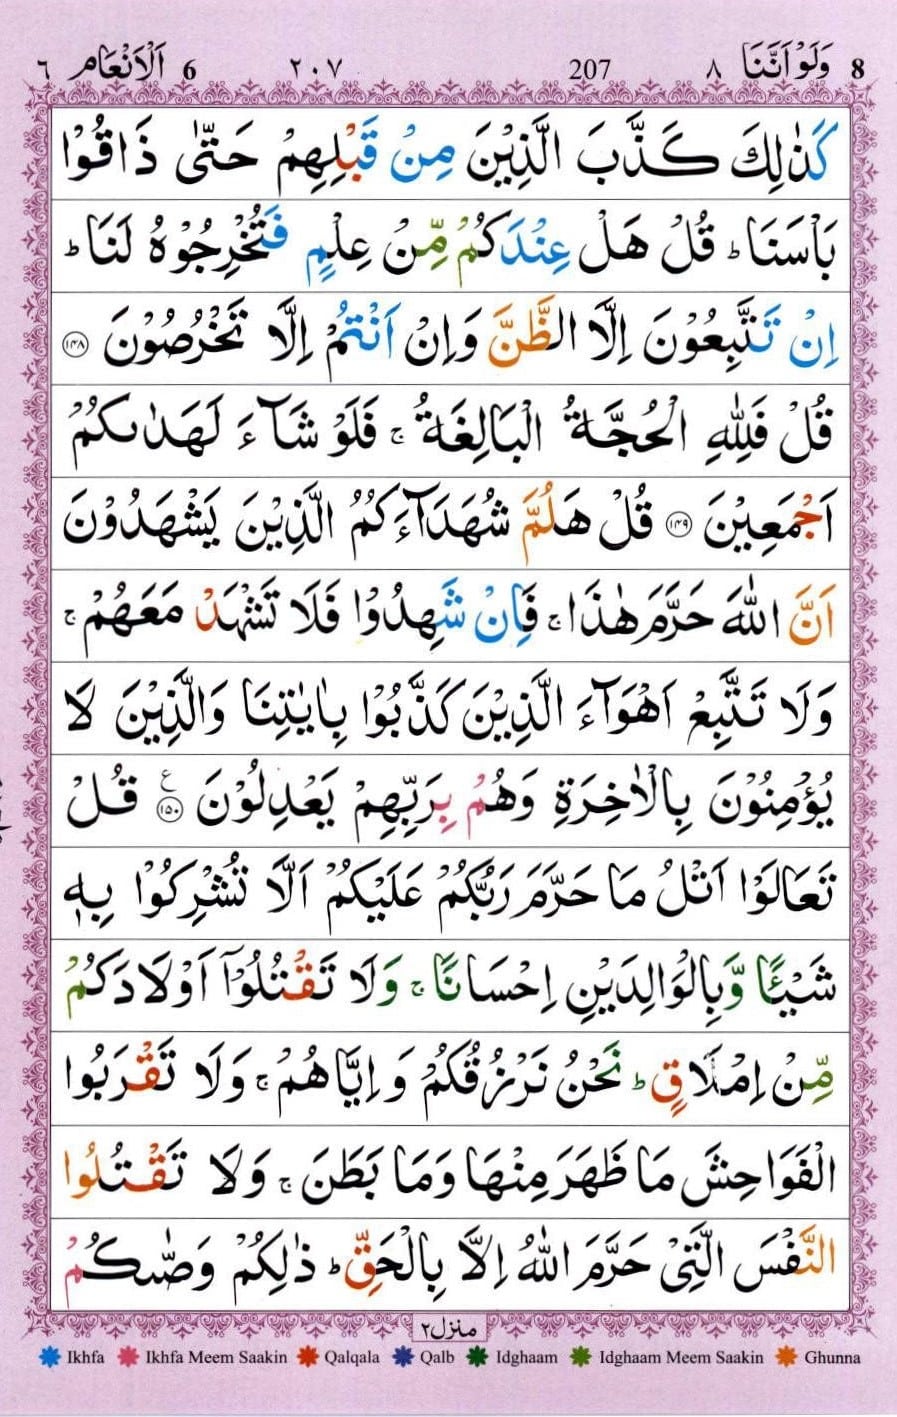 8 وَلَوْ اَنَّنَا ٨ 207 ٢٠٧ 6 اَلْاَنْعَام ٦
كَذٰلِكَ كَذَّبَ الَّذِيْنَ مِنْ قَبْلِهِمْ حَتّٰى ذَاقُوْا
بَاْسَنَا ؕ قُلْ هَلْ عِنْدَكُمْ مِّنْ عِلْمٍ فَتُخْرِجُوْهُ لَنَا ؕ
اِنْ تَتَّبِعُوْنَ اِلَّا الظَّنَّ وَاِنْ اَنْتُمْ اِلَّا تَخْرُصُوْنَ ﴿۱۴۸﴾
قُلْ فَلِلّٰهِ الْحُجَّةُ الْبَالِغَةُ ۚ فَلَوْ شَآءَ لَهَدٰىكُمْ
اَجْمَعِيْنَ ﴿۱۴۹﴾ قُلْ هَلُمَّ شُهَدَآءَكُمُ الَّذِيْنَ يَشْهَدُوْنَ
اَنَّ اللّٰهَ حَرَّمَ هٰذَا ۚ فَاِنْ شَهِدُوْا فَلَا تَشْهَدْ مَعَهُمْ ۚ
وَلَا تَتَّبِعْ اَهْوَآءَ الَّذِيْنَ كَذَّبُوْا بِاٰيٰتِنَا وَالَّذِيْنَ لَا
يُؤْمِنُوْنَ بِالْاٰخِرَةِ وَهُمْ بِرَبِّهِمْ يَعْدِلُوْنَ ﴿۱۵۰﴾ ع قُلْ
تَعَالَوْا اَتْلُ مَا حَرَّمَ رَبُّكُمْ عَلَيْكُمْ اَلَّا تُشْرِكُوْا بِهٖ
شَيْـًٔا وَّبِالْوَالِدَيْنِ اِحْسَانًا ۚ وَلَا تَقْتُلُوْۤا اَوْلَادَكُمْ
مِّنْ اِمْلَاقٍ ؕ نَحْنُ نَرْزُقُكُمْ وَاِيَّاهُمْ ۚ وَلَا تَقْرَبُوا
الْفَوَاحِشَ مَا ظَهَرَ مِنْهَا وَمَا بَطَنَ ۚ وَلَا تَقْتُلُوا
النَّفْسَ الَّتِيْ حَرَّمَ اللّٰهُ اِلَّا بِالْحَقِّ ؕ ذٰلِكُمْ وَصّٰىكُمْ
منزل ٢
Ikhfa Ikhfa Meem Saakin Qalqala Qalb Idghaam Idghaam Meem Saakin Ghunna